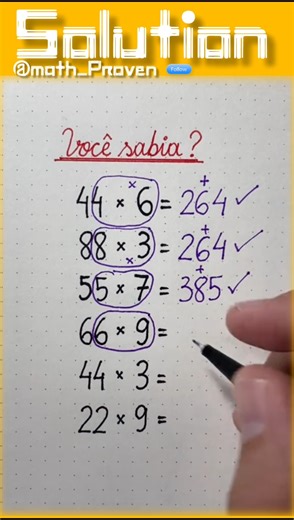 Solution
@math_Proven Follow
Você sabia?
44 × 6 = 264 ✓
88 × 3 = 264 ✓
55 × 7 = 385 ✓
66 × 9 =
44 × 3 =
22 × 9 =